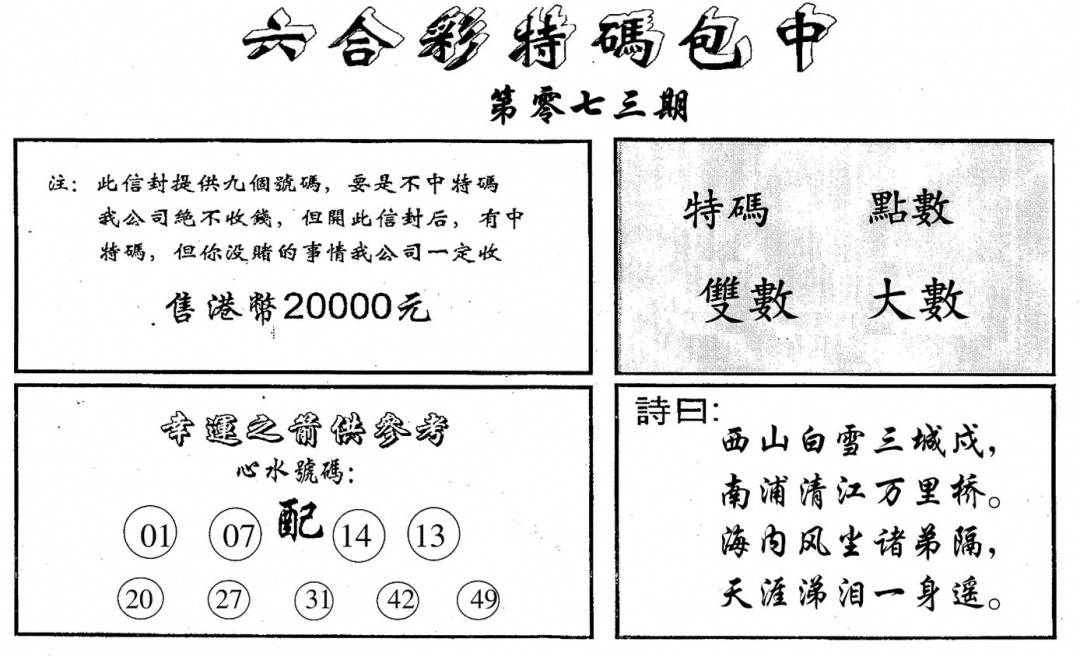 六合彩特碼包中
第零七三期
注：此信封提供九個號碼，要是不中特碼
我公司絕不收錢，但開此信封后，有中
特碼，但你没賭的事情我公司一定收
售港幣20000元
特碼 點數
雙數 大數
幸運之箭供參考
心水號碼：
01 07 配 14 13
20 27 31 42 49
詩曰：
西山白雪三城戍，
南浦清江万里桥。
海内风尘诸弟隔，
天涯涕泪一身遥。